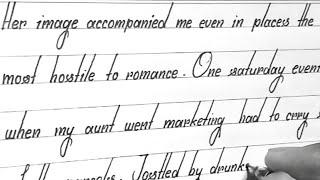 Her image accompanied me even in places the
most hostile to romance. One saturday eveni
when my aunt went marketing had to crry s
Jostled by drunks